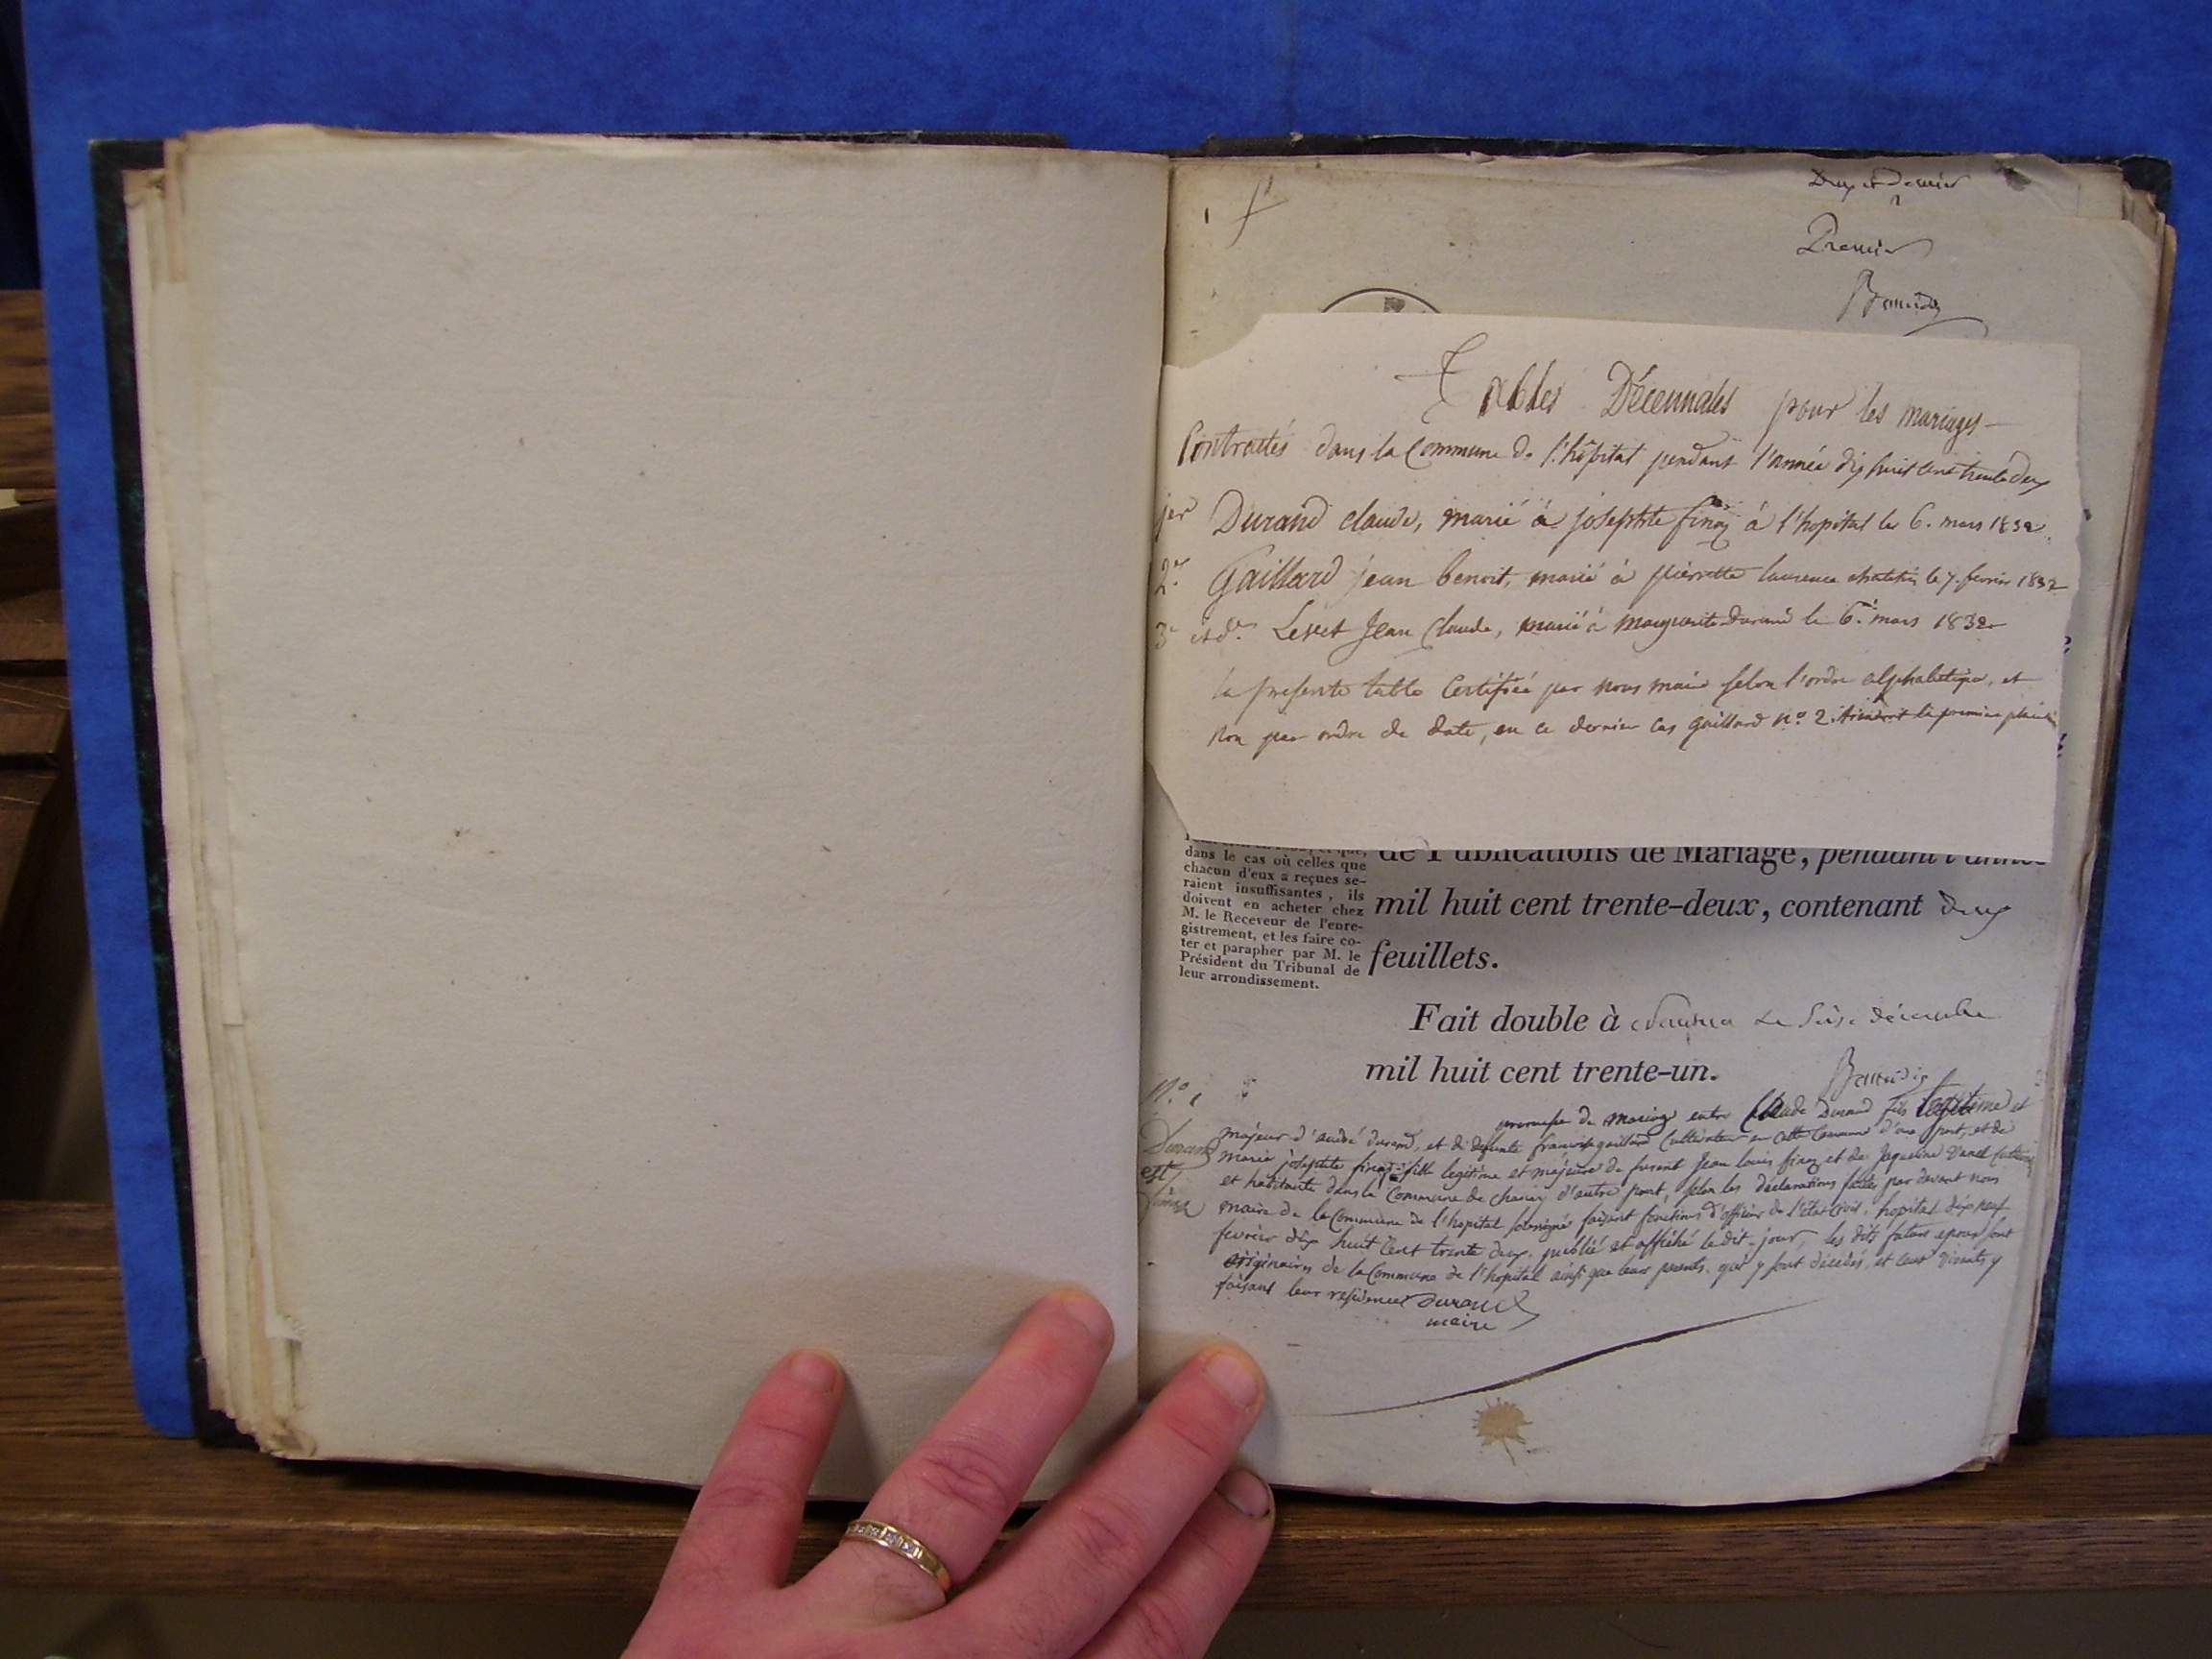 Deux et dernier
Premier
Tables Décennales pour les mariages
Contractés dans la Commune de l'hôpital pendant l'année dix huit cent trente deux
1er Durand claude, marié à josephte finaz à l'hopital le 6. mars 1832
2e Gaillard jean benoit, marié à pierrette laurence le 7. fevrier 1832
3e Levet Jean Claude, marié à marguerite Durand le 6. mars 1832
la presente table Certifiée par nous maire selon l'ordre alphabetique, et
non par ordre de date, en ce dernier cas gaillard n.º 2. la premiere place
dans le cas où celles que
chacun d'eux a reçues se-
raient insuffisantes, ils
doivent en acheter chez
M. le Receveur de l'enre-
gistrement, et les faire co-
ter et parapher par M. le
Président du Tribunal de
leur arrondissement.
de Publications de Mariage, pendant l'année
mil huit cent trente-deux, contenant deux
feuillets.
Fait double à Le décembre
mil huit cent trente-un.
N.º 1
Durand
et
finaz
promesse de mariage entre Claude Durand fils legitime et
majeur d'andré durand, et de defunte françoise gaillard Cultivateur en cette Commune d'une part, et de
marie josephte finaz fille legitime et majeure de Jean louis finaz et de Jaqueline
et habitante dans la Commune de d'autre part, selon les declarations faites par devant nous
maire de la Commune de l'hopital soussigné faisant fonctions d'officier de l'état civil, hopital dix neuf
fevrier dix huit Cent trente deux. publié et affiché le dit jour, les dits futurs epoux sont
originaires de la Commune de l'hopital ainsi que leurs parents qui y sont décédés, et leurs vivants y
faisant leur residence Durand
maire